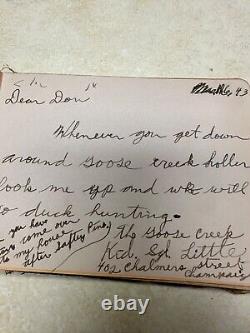 43
Dear Don
Whenever you get down
around Goose creek holler
look me up and we will
go duck hunting.
The Goose Creek
Kid. Little
402 Chalmers street
Champaig
you have
come over
to my house
after
ebay